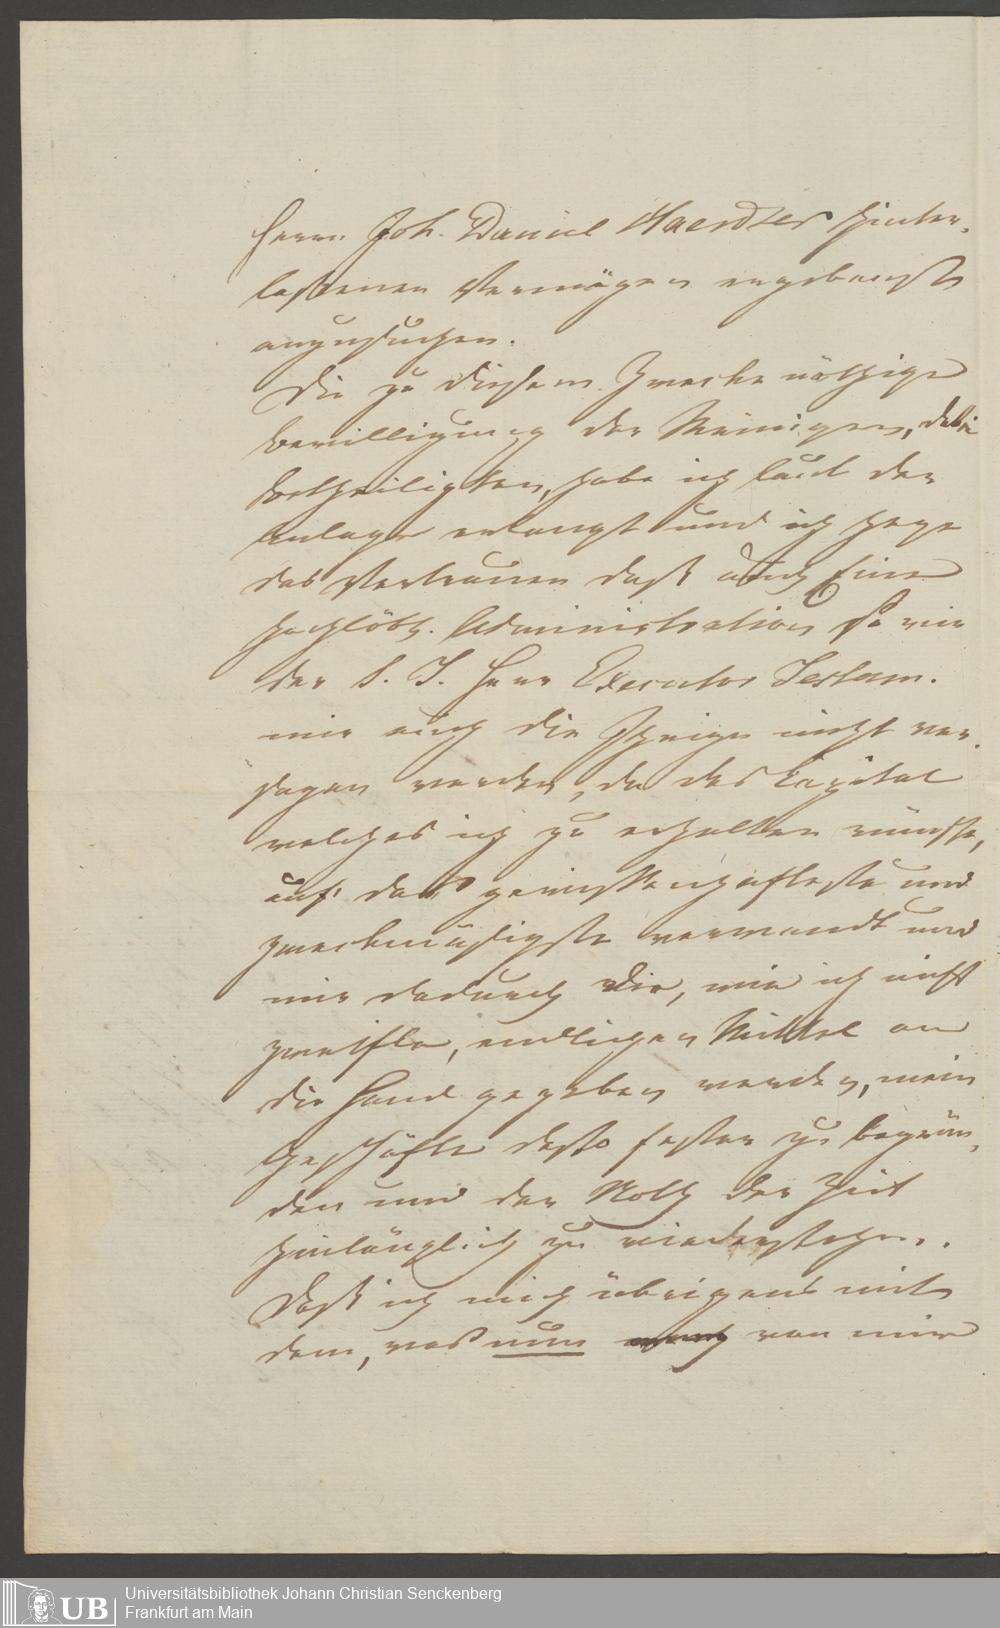 Herrn Joh. Daniel Haerdter hinter-
lassenen Vermögen ergebenst
anzusuchen.
Die zu diesem Zwecke nöthige
Bewilligung der Meinigen, dabei
betheiligten, habe ich laut der
Anlage erlangt und ich hege
das Vertrauen daß auch Eine
hochlöbl. Administration so wie
der S. T. Herr Executor Testam.
mir auch die Ihrige nicht ver-
sagen werden, da das Capital
welches ich zu erhalten wünsche,
auf das gewissenhafteste und
zweckmäsigste verwandt und
mir dadurch die, wie ich nicht
zweifle, endlichen Mittel an
die Hand gegeben werden, mein
Geschäfte desto fester zu begrün-
den und der Noth der Zeit
hinlänglich zu wiederstehen.
Daß ich mich übrigens mit
dem, was nun von mir
Universitätsbibliothek Johann Christian Senckenberg
Frankfurt am Main
UB